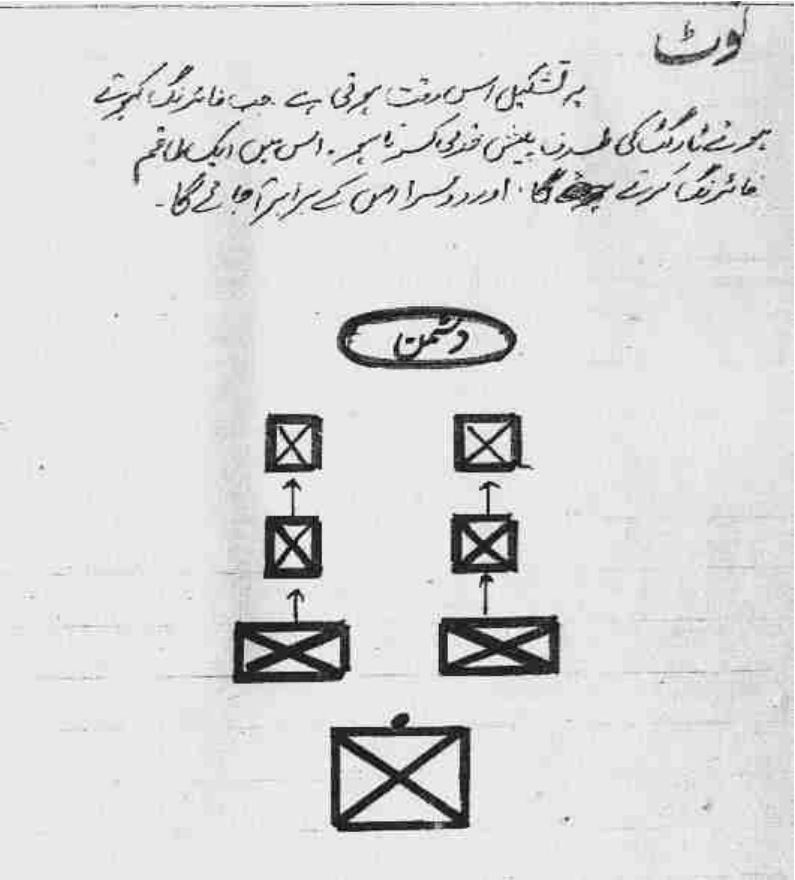 نوٹ
یہ تشکیل اس وقت ہوتی ہے جب فائرنگ کرتے
ہوئے ٹارگٹ کی طرف پیش قدمی کرنا ہو۔ اس میں ایک طاقم
فائرنگ کرتے گا، اور دوسرا اس کے برابر آجائے گا۔
دشمن